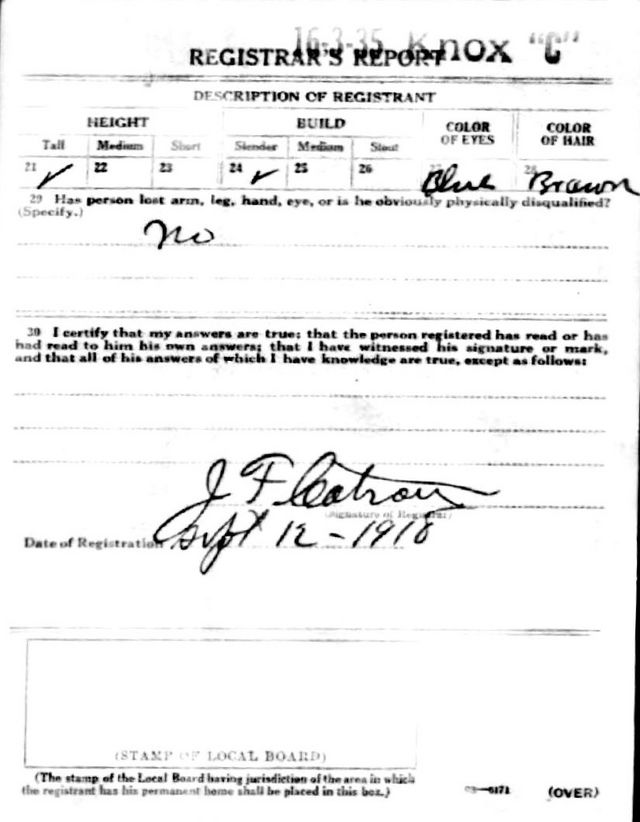 16-3-35 Knox "C"
REGISTRAR'S REPORT
DESCRIPTION OF REGISTRANT
HEIGHT BUILD COLOR OF EYES COLOR OF HAIR
Tall Medium Short Slender Medium Stout
21 ✓ 22 23 24 ✓ 25 26 27 Blue 28 Brown
29 Has person lost arm, leg, hand, eye, or is he obviously physically disqualified?
(Specify.)
No
30 I certify that my answers are true; that the person registered has read or has
had read to him his own answers; that I have witnessed his signature or mark,
and that all of his answers of which I have knowledge are true, except as follows:
J F Catron
(Signature of Registrar)
Date of Registration Sept 12-1918
(STAMP OF LOCAL BOARD)
(The stamp of the Local Board having jurisdiction of the area in which
the registrant has his permanent home shall be placed in this box.)
03—6171 (OVER)